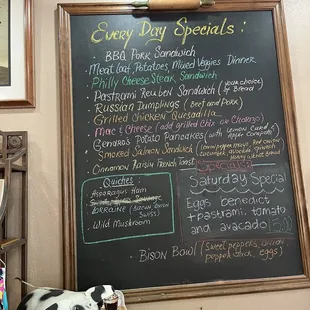 Every Day Specials:
BBQ Pork Sandwich
Meat loaf, Potatoes, Mixed Veggies Dinner
Philly Cheese Steak Sandwich
Pastrami Reuben Sandwich (your choice of Bread)
Russian Dumplings (Beef and Pork)
Grilled Chicken Quesadilla
Mac & Cheese (add grilled Chix or Chorizo)
Genaros Potato Pancakes (with Lemon Cured
Smoked Salmon Sandwich
Cinnamon Raisin French Toast
Quiches
Asparagus Ham
Lorraine (Bacon, Onion, Swiss)
Wild Mushroom
Saturday Special
Eggs benedict
+ pastrami, tomato
and avocado
Bison Bowl (Sweet peppers, onion,
eggs)